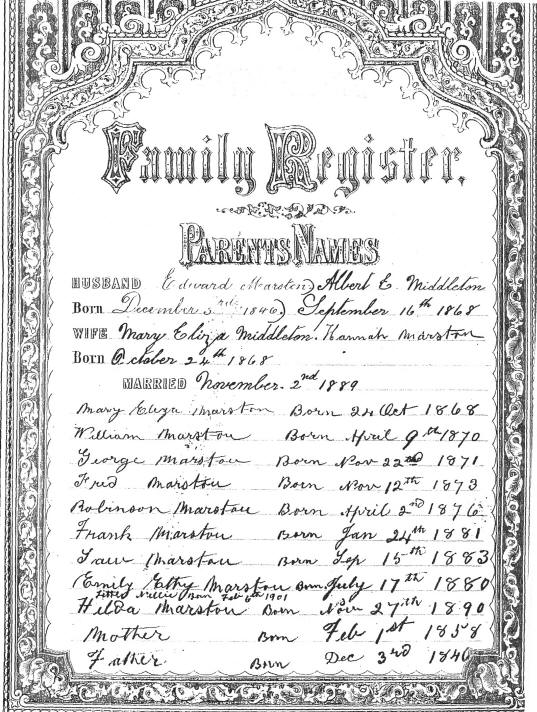 Family Register.
PARENTS NAMES
HUSBAND Edward Marston) Albert E. Middleton
Born December 3rd 1846) September 16th 1868
WIFE Mary Eliza Middleton. Hannah Marston
Born October 24th 1868
MARRIED November. 2nd 1889
Mary Eliza Marston Born 24 Oct 1868
William Marston Born April 9th 1870
George Marston Born Nov 22nd 1871
Fred Marston Born Nov 12th 1873
Robinson Marston Born April 2nd 1876
Frank Marston Born Jan 24th 1881
Marston Born Sep 15th 1883
Emily Marston Born July 17th 1880
Nellie Born Feb 6th 1901
Hilda Marston Born Nov 27th 1890
Mother Born Feb 1st 1858
Father. Born Dec 3rd 1846